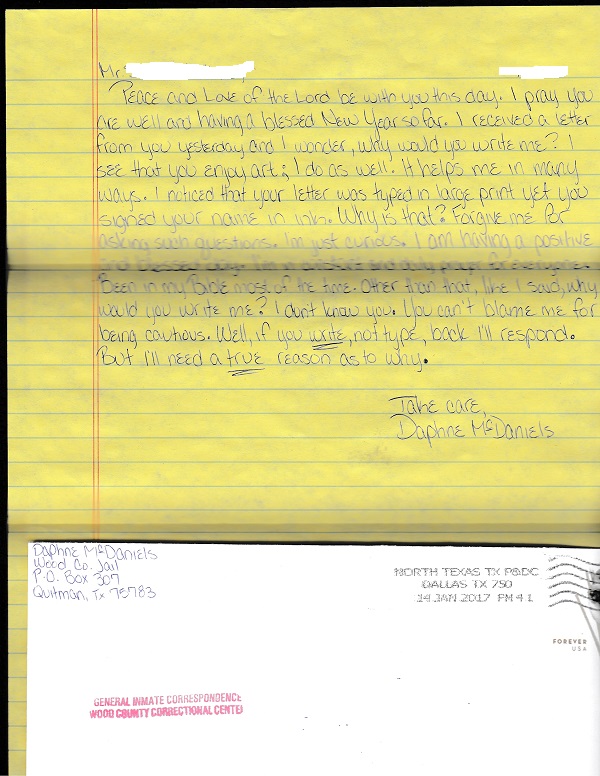 Mr
Peace and Love of the Lord be with you this day. I pray you
are well and having a blessed New Year so far. I received a letter
from you yesterday and I wonder, why would you write me? I
see that you enjoy art; I do as well. It helps me in many
ways. I noticed that your letter was typed in large print yet you
signed your name in ink. Why is that? Forgive me for
asking such questions. I'm just curious. I am having a positive
and blessed day. I'm a and daily prayer for everyone.
Been in my Bible most of the time. Other than that, like I said, why
would you write me? I don't know you. You can't blame me for
being cautious. Well, if you write, not type, back I'll respond.
But I'll need a true reason as to why.
Take care,
Daphne McDaniels
Daphne McDaniels
Wood Co. Jail
P.O. Box 307
Quitman, Tx 75783
NORTH TEXAS TX P&DC
DALLAS TX 750
14 JAN 2017 PM 4 L
FOREVER
USA
GENERAL INMATE CORRESPONDENCE
WOOD COUNTY CORRECTIONAL CENTER